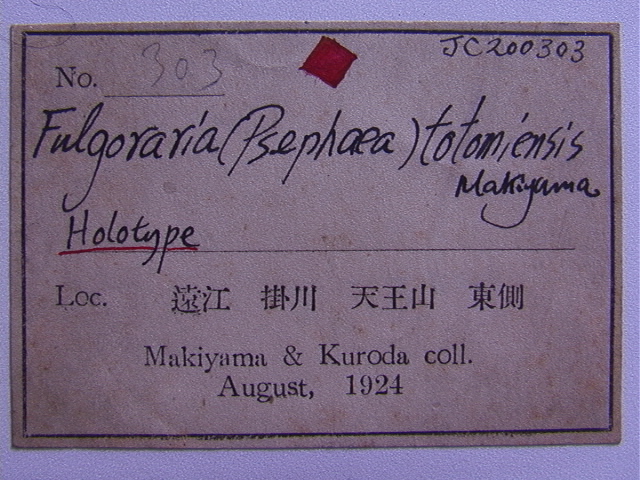 JC200303
No. 303
Fulgoraria (Psephaea) totomiensis
Makiyama
Holotype
Loc. 遠江 掛川 天王山 東側
Makiyama & Kuroda coll.
August, 1924